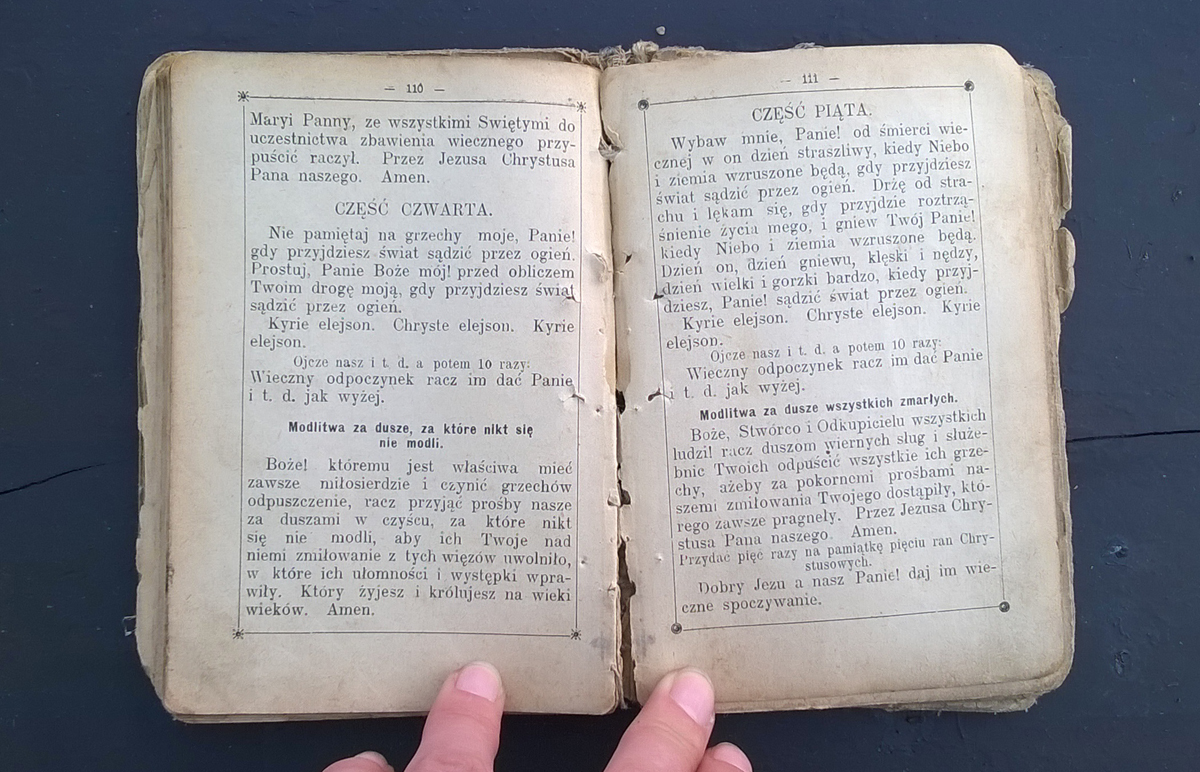 — 110 —
Maryi Panny, ze wszystkimi Swiętymi do
uczestnictwa zbawienia wiecznego przy-
puścić raczył. Przez Jezusa Chrystusa
Pana naszego. Amen.
CZĘŚĆ CZWARTA.
Nie pamiętaj na grzechy moje, Panie!
gdy przyjdziesz świat sądzić przez ogień.
Prostuj, Panie Boże mój! przed obliczem
Twoim drogę moją, gdy przyjdziesz świat
sądzić przez ogień.
Kyrie elejson. Chryste elejson. Kyrie
elejson.
Ojcze nasz i t. d. a potem 10 razy:
Wieczny odpoczynek racz im dać Panie
i t. d. jak wyżej.
Modlitwa za dusze, za które nikt się
nie modli.
Boże! któremu jest właściwa mieć
zawsze miłosierdzie i czynić grzechów
odpuszczenie, racz przyjąć prośby nasze
za duszami w czyścu, za które nikt
się nie modli, aby ich Twoje nad
niemi zmiłowanie z tych więzów uwolniło,
w które ich ułomności i występki wpra-
wiły. Który żyjesz i królujesz na wieki
wieków. Amen.
— 111 —
CZĘŚĆ PIĄTA.
Wybaw mnie, Panie! od śmierci wie-
cznej w on dzień straszliwy, kiedy Niebo
i ziemia wzruszone będą, gdy przyjdziesz
świat sądzić przez ogień. Drżę od stra-
chu i lękam się, gdy przyjdzie roztrzą-
śnienie życia mego, i gniew Twój Panie!
kiedy Niebo i ziemia wzruszone będą.
Dzień on, dzień gniewu, klęski i nędzy,
dzień wielki i gorzki bardzo, kiedy przyj-
dziesz, Panie! sądzić świat przez ogień.
Kyrie elejson. Chryste elejson. Kyrie
elejson.
Ojcze nasz i t. d. a potem 10 razy:
Wieczny odpoczynek racz im dać Panie
i t. d. jak wyżej.
Modlitwa za dusze wszystkich zmarłych.
Boże, Stwórco i Odkupicielu wszystkich
ludzi! racz duszom wiernych sług i służe-
bnic Twoich odpuścić wszystkie ich grze-
chy, ażeby za pokornemi prośbami na-
szemi zmiłowania Twojego dostąpiły, któ-
rego zawsze pragneły. Przez Jezusa Chry-
stusa Pana naszego. Amen.
Przydać pięć razy na pamiątkę pięciu ran Chry-
stusowych.
Dobry Jezu a nasz Panie! daj im wie-
czne spoczywanie.